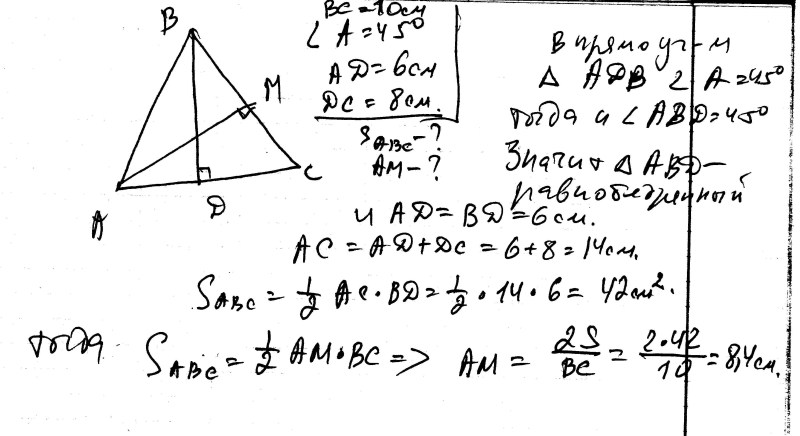 B
M
C
D
A
BC = 10см
∠ A = 45°
AD = 6см
DC = 8см.
S ABC - ?
AM - ?
В прямоуг-м
Δ ADB ∠ A = 45°
тогда и ∠ ABD = 45°
Значит Δ ABD -
равнобедренный
и AD = BD = 6 см.
AC = AD + DC = 6 + 8 = 14см.
S ABC = 1/2 AC · BD = 1/2 · 14 · 6 = 42 см².
тогда S ABC = 1/2 AM · BC => AM = 2S/BC = 2·42/10 = 8,4 см.